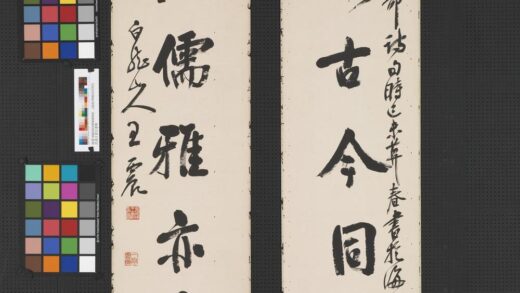 詩句時己未春書於海
古今同
儒雅亦
白龍山人王震